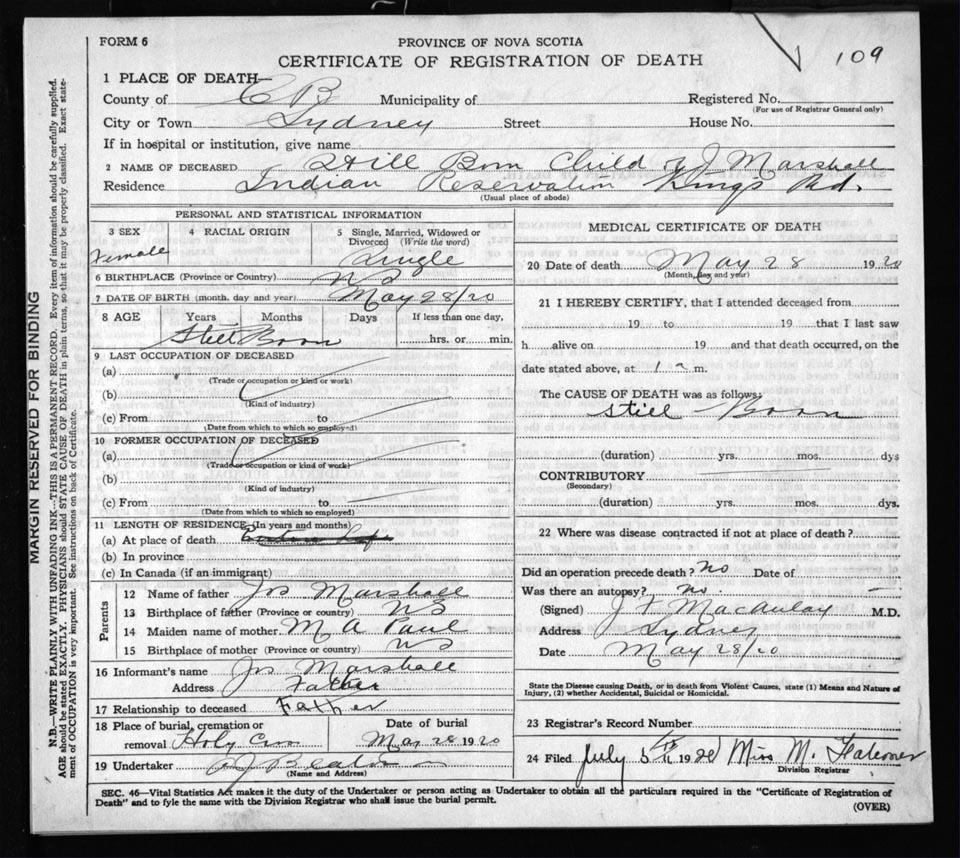 109
FORM 6
PROVINCE OF NOVA SCOTIA
CERTIFICATE OF REGISTRATION OF DEATH
1 PLACE OF DEATH—
County of C B Municipality of Registered No.
(For use of Registrar General only)
City or Town Sydney Street House No.
If in hospital or institution, give name
2 NAME OF DECEASED Still Born Child of J Marshall
Residence Indian Reservation Kings Rd.
(Usual place of abode)
PERSONAL AND STATISTICAL INFORMATION
3 SEX 4 RACIAL ORIGIN 5 Single, Married, Widowed or Divorced (Write the word)
Female Single
6 BIRTHPLACE (Province or Country) NS
7 DATE OF BIRTH (month, day and year) May 28/20
8 AGE Years Months Days If less than one day,
Still Born hrs. or min.
9 LAST OCCUPATION OF DECEASED
(a)
(Trade or occupation or kind or work)
(b)
(Kind of industry)
(c) From to
(Date from which to which so employed)
10 FORMER OCCUPATION OF DECEASED
(a)
(Trade or occupation or kind of work)
(b)
(Kind of industry)
(c) From to
(Date from which to which so employed)
11 LENGTH OF RESIDENCE (In years and months)
(a) At place of death
(b) In province
(c) In Canada (if an immigrant)
Parents
12 Name of father Jos Marshall
13 Birthplace of father (Province or country) NS
14 Maiden name of mother M A Paul
15 Birthplace of mother (Province or country) NS
16 Informant's name Jos Marshall
Address Father
17 Relationship to deceased Father
18 Place of burial, cremation or Date of burial
removal Holy Cross May 28 1920
19 Undertaker
(Name and Address)
MEDICAL CERTIFICATE OF DEATH
20 Date of death May 28 1920
(Month, day and year)
21 I HEREBY CERTIFY, that I attended deceased from
19 to 19 that I last saw
h alive on 19 and that death occurred, on the
date stated above, at 1 a m.
The CAUSE OF DEATH was as follows:
Still Born
(duration) yrs. mos. dys
CONTRIBUTORY
(Secondary)
(duration) yrs. mos. dys.
22 Where was disease contracted if not at place of death?
Did an operation precede death? No Date of
Was there an autopsy? no.
(Signed) J F MacAulay M.D.
Address Sydney
Date May 28/20
State the Disease causing Death, or in death from Violent Causes, state (1) Means and Nature of
Injury, (2) whether Accidental, Suicidal or Homicidal.
23 Registrar's Record Number
24 Filed July 5th 1920 Miss M.
Division Registrar
SEC. 46—Vital Statistics Act makes it the duty of the Undertaker or person acting as Undertaker to obtain all the particulars required in the "Certificate of Registration of
Death" and to fyle the same with the Division Registrar who shall issue the burial permit.
(OVER)
MARGIN RESERVED FOR BINDING
N.B.—WRITE PLAINLY WITH UNFADING INK—THIS IS A PERMANENT RECORD. Every item of information should be carefully supplied.
AGE should be stated EXACTLY. PHYSICIANS should STATE CAUSE OF DEATH in plain terms, so that it may be properly classified. Exact state-
ment of OCCUPATION is very important. See instructions on back of Certificate.